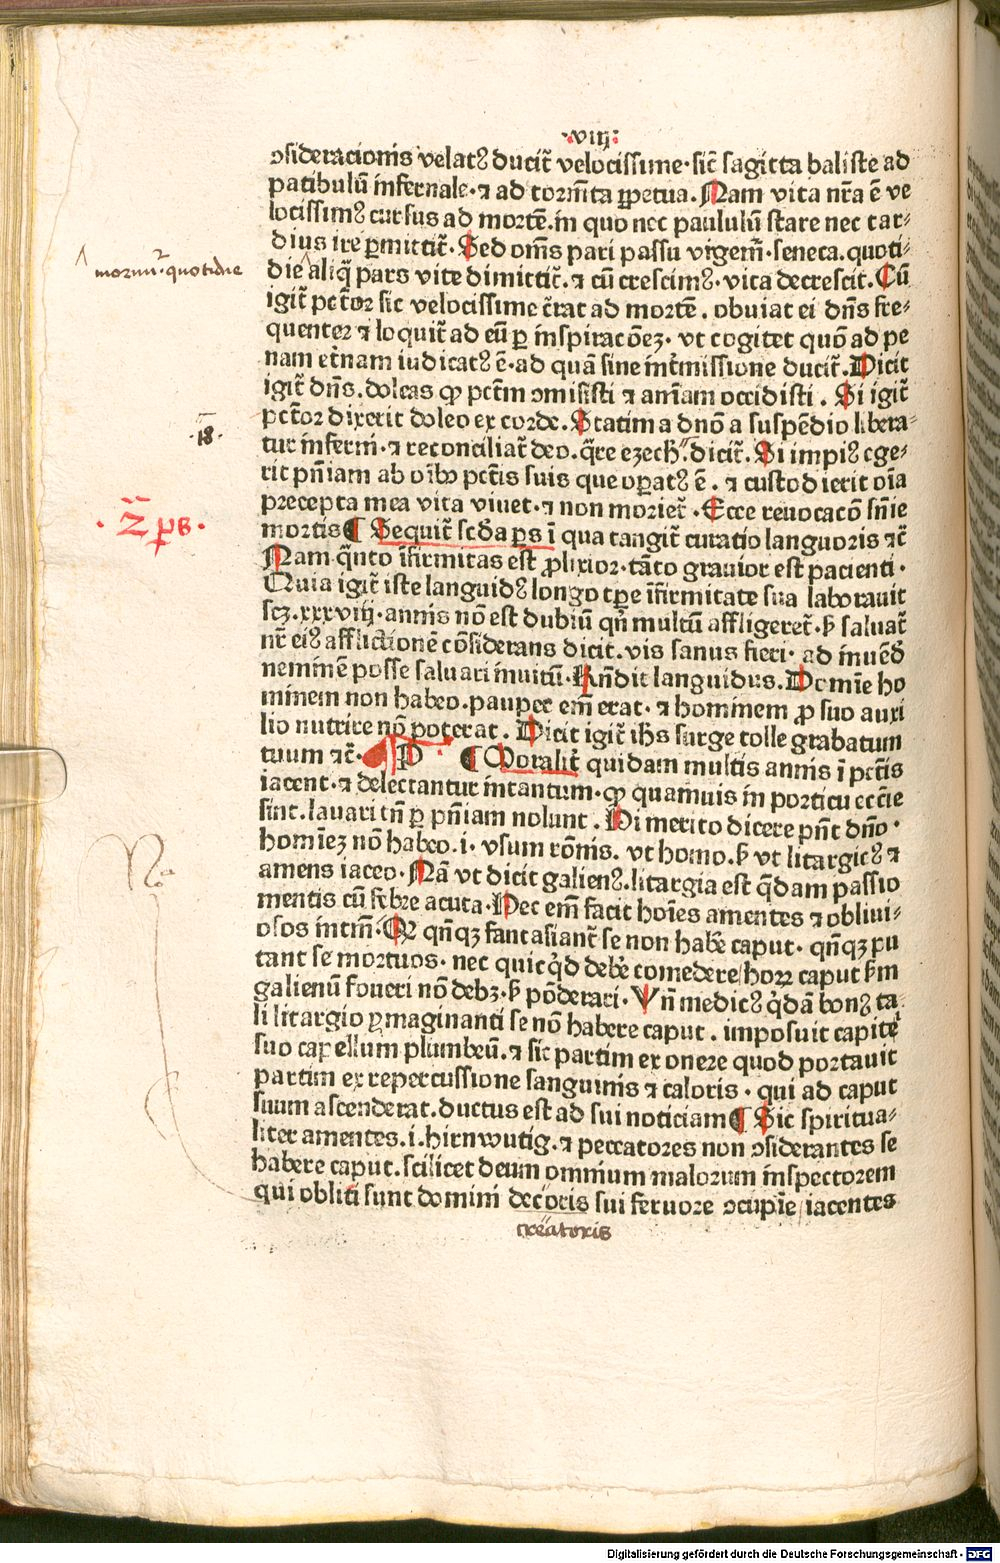 ·viij:
ɔsideracionis velatꝰ ducit̃ velocissime·sic̃ sagitta baliste ad
patibulũ infernale·⁊ ad tormẽta ꝑpetua. Nam vita nr̃a ẽ ve
locissimꝰ cursus ad mortẽ.in quo nec paululũ stare nec tar⸗
dius ire ꝑmittit̃. Sed om̃s pari passu vrgem̃·seneca.quoti⸗
mormur·quotidie
die aliq̃ pars vite dimittit̃. ⁊ cũ crescimꝰ·vita decrescit. Cũ
igit̃ pc̃tor sic velocissime t̃rat ad mortẽ. obuiat ei dñs fre⸗
quenter ⁊ loquit̃ ad eũ ꝑ inspiracõeꝫ· vt cogitet quõ ad pe
nam et̃nam iudicatꝰ ẽ·ad quã sine int̃missione ducit̃. Dicit
igit̃ dñs. doleas ꝙ pctm̃ ɔmisisti ⁊ aniam̃ occidisti. Si igit̃
pc̃tor dixerit doleo ex corde. Statim a dno̅ a suspẽdio libera⸗
18·
tur inferni·⁊ reconciliat̃ deo. q̃re ezech. dicit̃. Si impiꝰ ege⸗
rit pñiam ab oĩbꝰ pctĩs suis que oꝑatꝰ ẽ. ⁊ custodierit oĩa
precepta mea vita viuet·⁊ non moriet̃. Ecce reuocacõ sñie
·2̃ ꝑs·
mortis¶ Sequit̃ sc̃da ꝑs ĩ qua tangit̃ curatio languoris ⁊c̃
Nam q̃nto ĩfirmitas est ꝓlixior·tãto grauior est pacienti·
Quia igit̃ iste languidꝰ longo tꝑe ĩfirmitate sua laborauit
scꝫ.xxxviij·annis nõ est dubiũ qñ multũ affligeret̃.ꝑ saluat̃
nr̃ eiꝰ afflictionẽ cõsiderans dicit.vis sanus fieri· ad inuẽd̃
neminẽ posse saluari inuitũ·Rñdit languidus. Domĩe ho
minem non habeo.pauper em̃ erat·⁊ hominem ꝓ suo auxi
lio nutrire nõ poterat. Dicit igit̃ ihs̃ surge tolle grabatum
tuum ⁊c̃· P ¶ Moralit̃ quidam multis annis ĩ pctĩs
iacent·⁊ delectantur intantum·ꝙ quamuis in porticu eccĩe
sint.lauari tñ ꝑ pñiam nolunt. Hi merito dicere pñt dño·
homĩeꝫ nõ habeo.i·vsum rõnis. vt homo.ꝑ vt litargicꝰ ⁊
amens iaceo·Nã vt dicit galienꝰ.litargia est q̃dam passio
mentis cũ febre acuta·Hec em̃ facit hoĩes amentes ⁊ obliui⸗
osos intm̃· Qr qñqꝫ fantasiant̃ se non habẽ caput·qñqꝫ pu
tant se mortuos·nec quicq̃d debẽt comedere/horꝝ caput ẜm
galienũ foueri nõ debꝫ·ꝑ põderari·Vñ medicꝰ q̃dã bonꝰ ta
li litargio ymaginanti se nõ habere caput. imposuit capite
suo capellum plumbeũ.⁊ sic partim ex onere quod portauit
partim ex repercussione sanguinis ⁊ caloris·qui ad caput
suum ascenderat.ductus est ad sui noticiam¶ Sic spiritua⸗
liter amentes.i.hirnwutig.⁊ peccatores non ɔsiderantes se
habere caput.scilicet deum omnium malorum inspectorem
qui obliti sunt domini decoris sui feruore ɔcupĩe/iacentes
creatoris
Digitalisierung gefördert durch die Deutsche Forschungsgemeinschaft · DFG